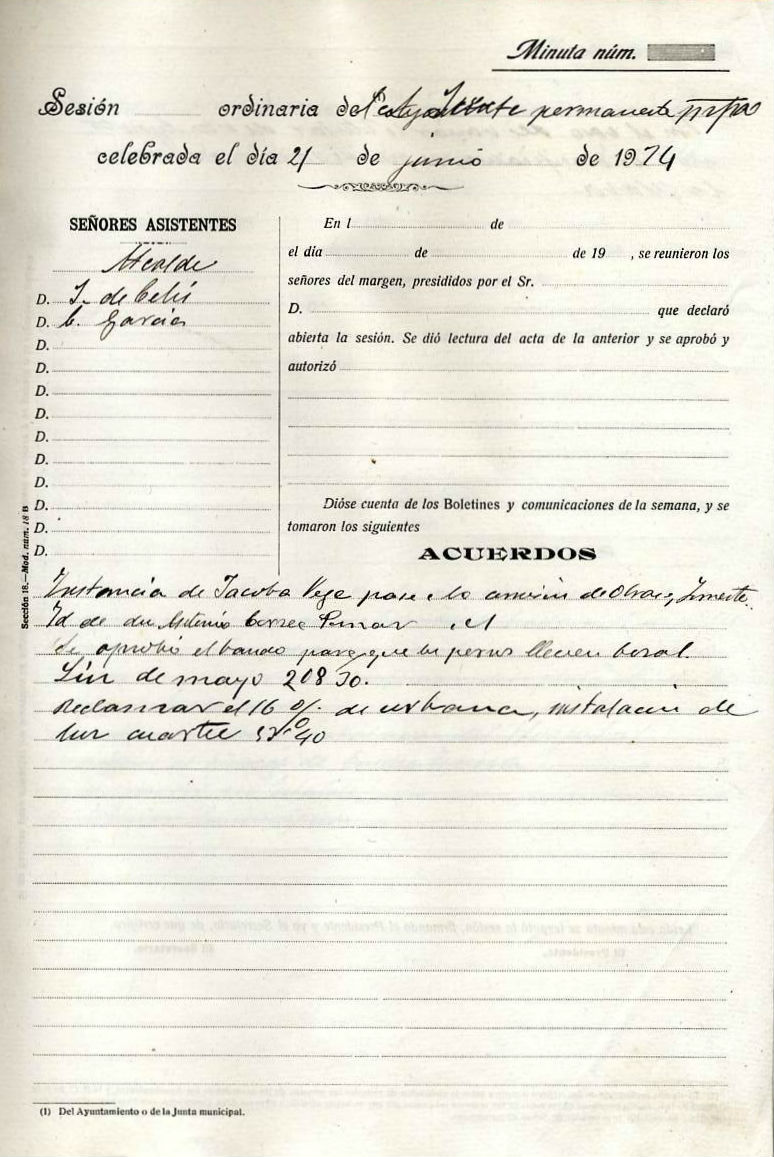 Minuta núm.
Sesión ordinaria de permanente
celebrada el día 21 de junio de 1924
SEÑORES ASISTENTES
Alcalde
D. J. de Celis
D. C. García
D.
D.
D.
D.
D.
D.
D.
D.
D.
D.
En l de
el día de de 19 , se reunieron los
señores del margen, presididos por el Sr.
D. que declaró
abierta la sesión. Se dió lectura del acta de la anterior y se aprobó y
autorizó
Dióse cuenta de los Boletines y comunicaciones de la semana, y se
tomaron los siguientes
ACUERDOS
Instancia de Jacoba Vega pase a la comisión de Obras,
Id de dn Antonio Correa id
Se aprobó el bando para que los perros lleven bozal.
Luz de mayo 208 30.
Reclamar el 16 % de urbana, instalación de
luz cuartel 40
Sección 18.—Mod. núm. 18 B
(1) Del Ayuntamiento o de la Junta municipal.